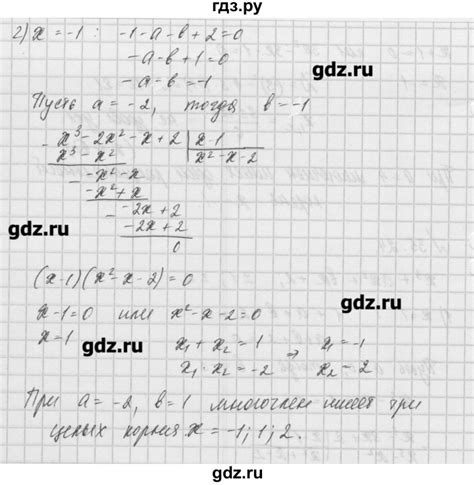 гдз.ру
2) x = -1 : -1-a-в+2=0
-a-в+1=0
gdz.ru
-a-в=-1
Пусть a=-2, тогда в=-1
x³-2x²-x+2 | x-1
x³-x² | x²-x-2
gdz.ru
-x²-x
-x²+x
-2x+2
-2x+2
0
gdz.ru
(x-1)(x²-x-2)=0
gdz.ru
x-1=0 или x²-x-2=0
x=1 x₁+x₂=1 ⇒ x₁=-1
gdz.ru
x₁·x₂=-2 x₂=2
При a=-2, в=1 многочлен имеет три
целых корня x=-1; 1; 2.
gdz.ru
gdz.ru